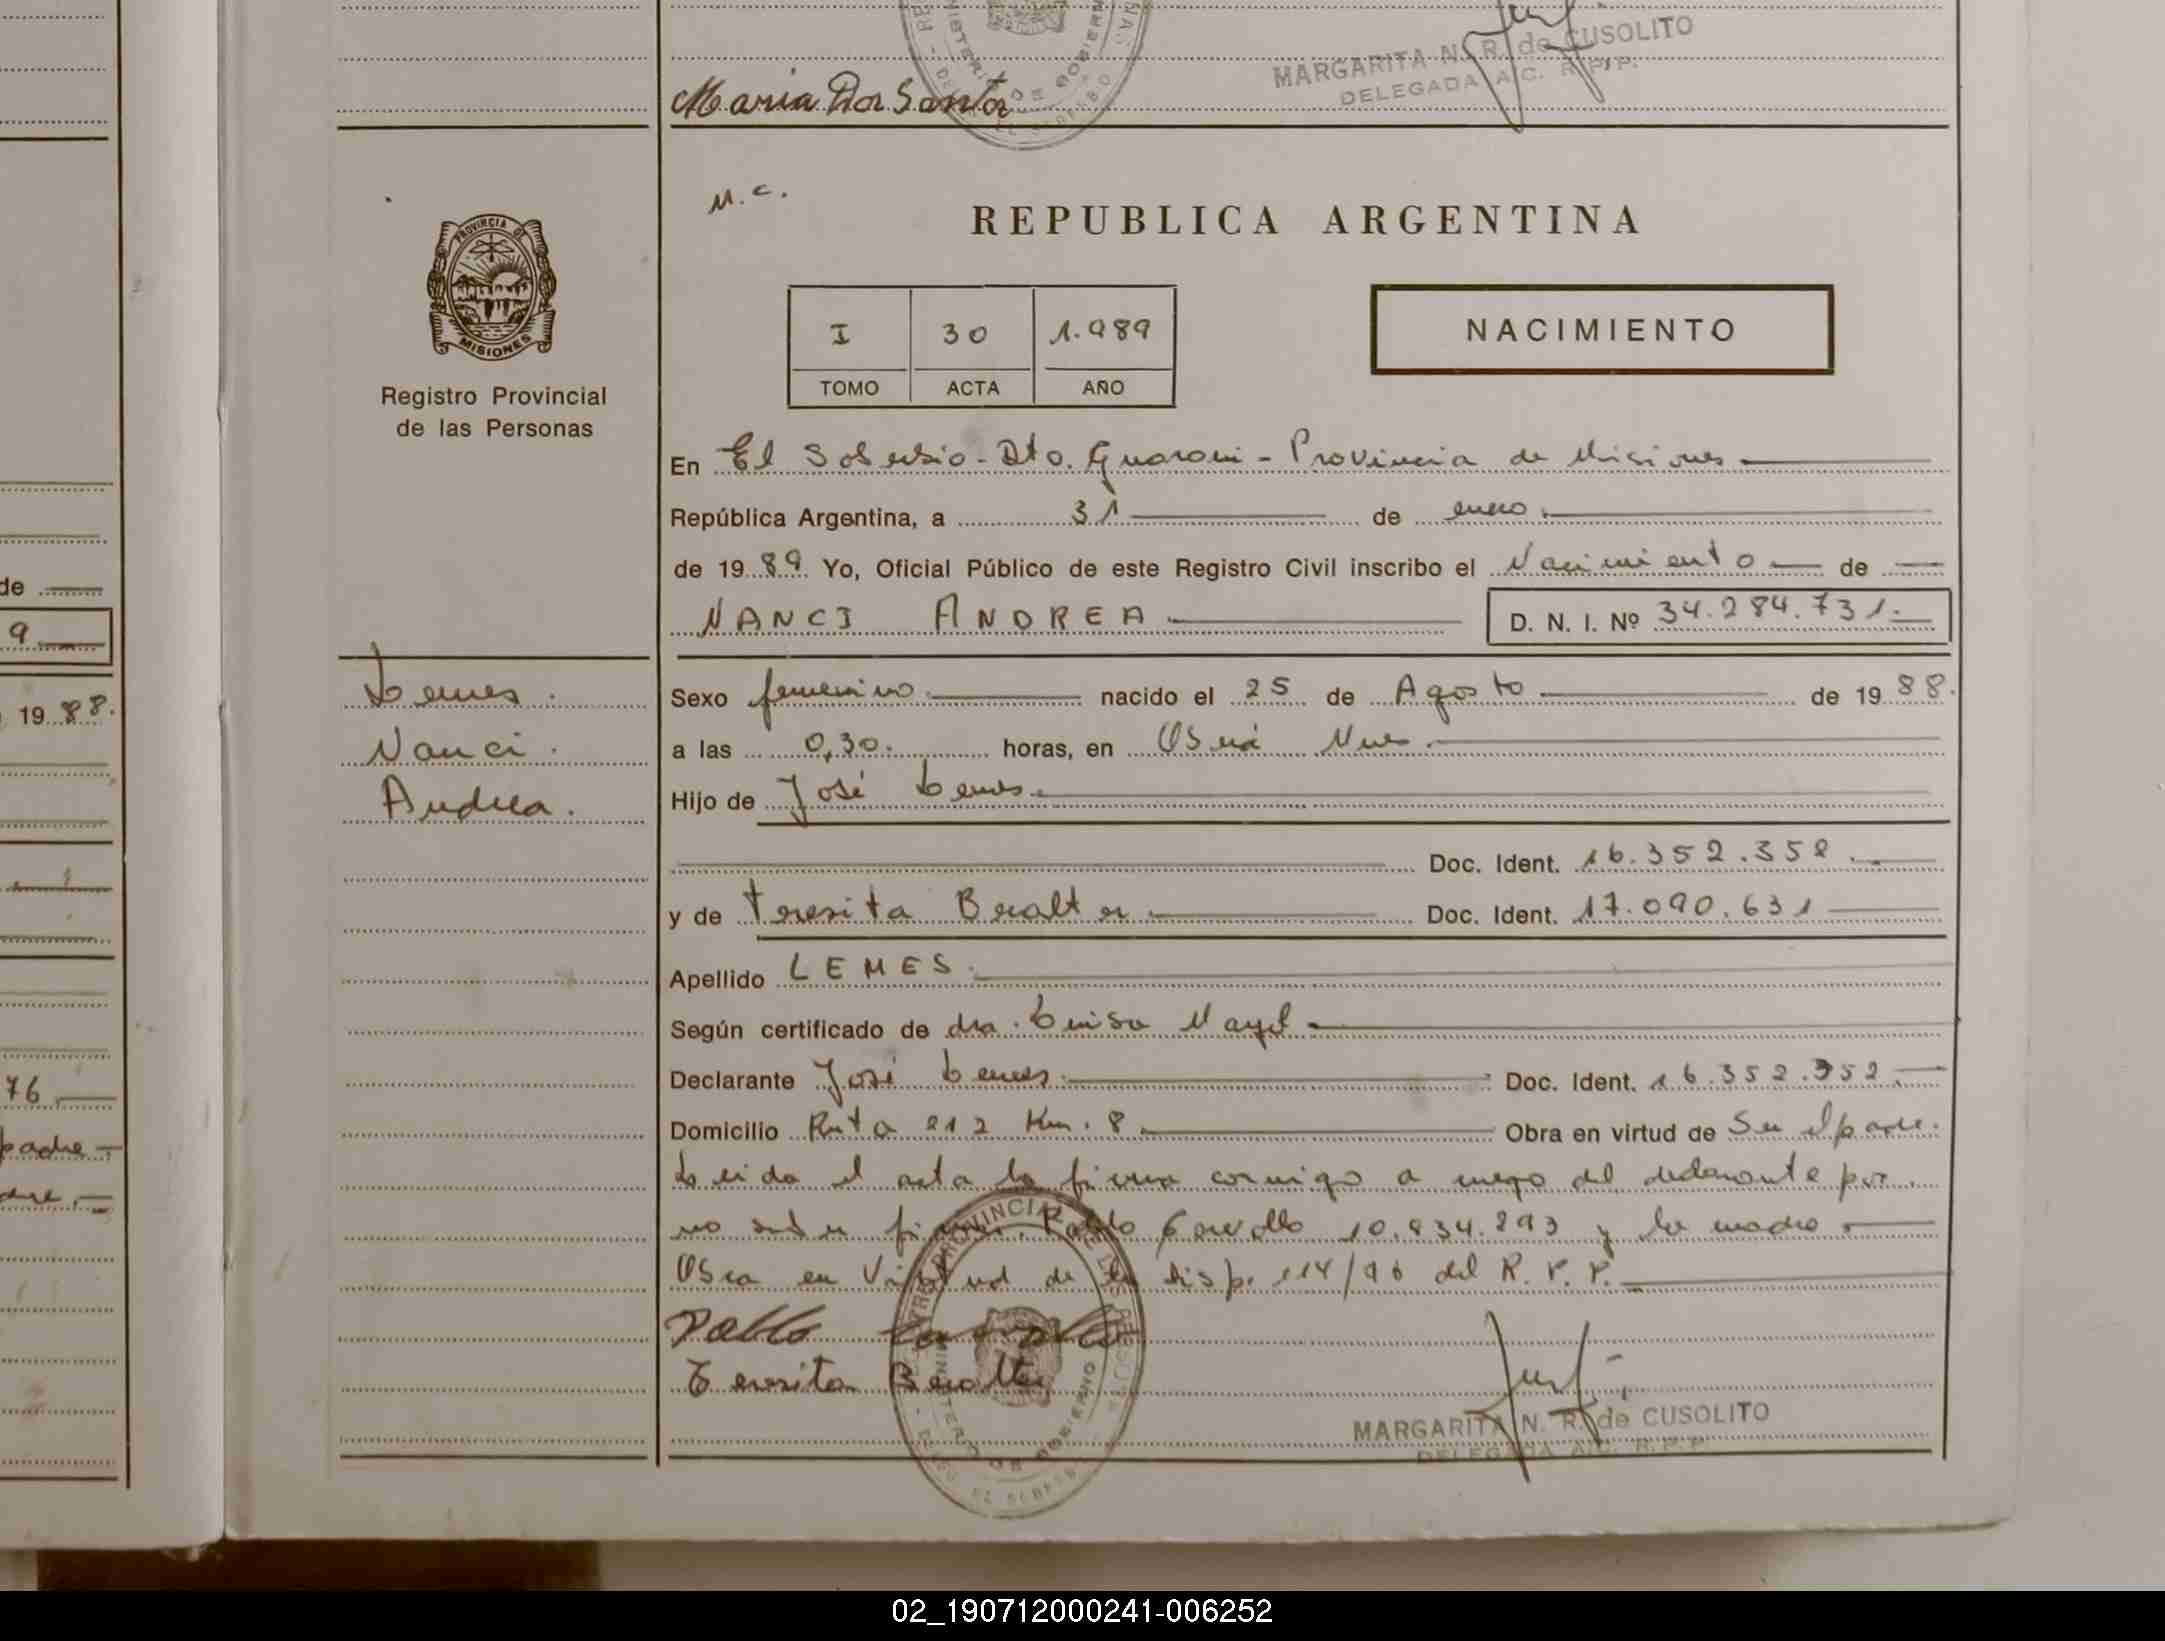 MARGARITA N. R. de CUSOLITO
DELEGADA A.C. R.P.P.
Maria Dos Santos
N.C.
REPUBLICA ARGENTINA
PROVINCIA DE
MISIONES
Registro Provincial
de las Personas
I 30 1.989
TOMO ACTA AÑO
NACIMIENTO
En El Soberbio - Dto. Guarani - Provincia de Misiones
República Argentina, a 31 de enero
de 1989 Yo, Oficial Público de este Registro Civil inscribo el Nacimiento de
NANCI ANDREA
D. N. I. Nº 34.284.731.
de
9
19 88.
76
padre
Lemes.
Nanci.
Andrea.
Sexo femenino. nacido el 25 de Agosto de 19 88.
a las 0,30. horas, en Oberá Mnes.
Hijo de José Lemes.
Doc. Ident. 16.352.352.
y de Teresita Bealter Doc. Ident. 17.090.631
Apellido LEMES.
Según certificado de dra. Luisa Nayl
Declarante José Lemes Doc. Ident. 16.352.352.
Domicilio Ruta 212 Km. 8. Obra en virtud de Ser el padre.
Leida el acta la firma conmigo a ruego del declarante por
no saber firmar, Pablo 10.834.293 y la madre
Obra en Virtud de la disp. 114/96 del R.P.P.
Pablo
Teresita Bealter
MARGARITA N. R. de CUSOLITO
DELEGADA A.C. R.P.P.
02_190712000241-006252